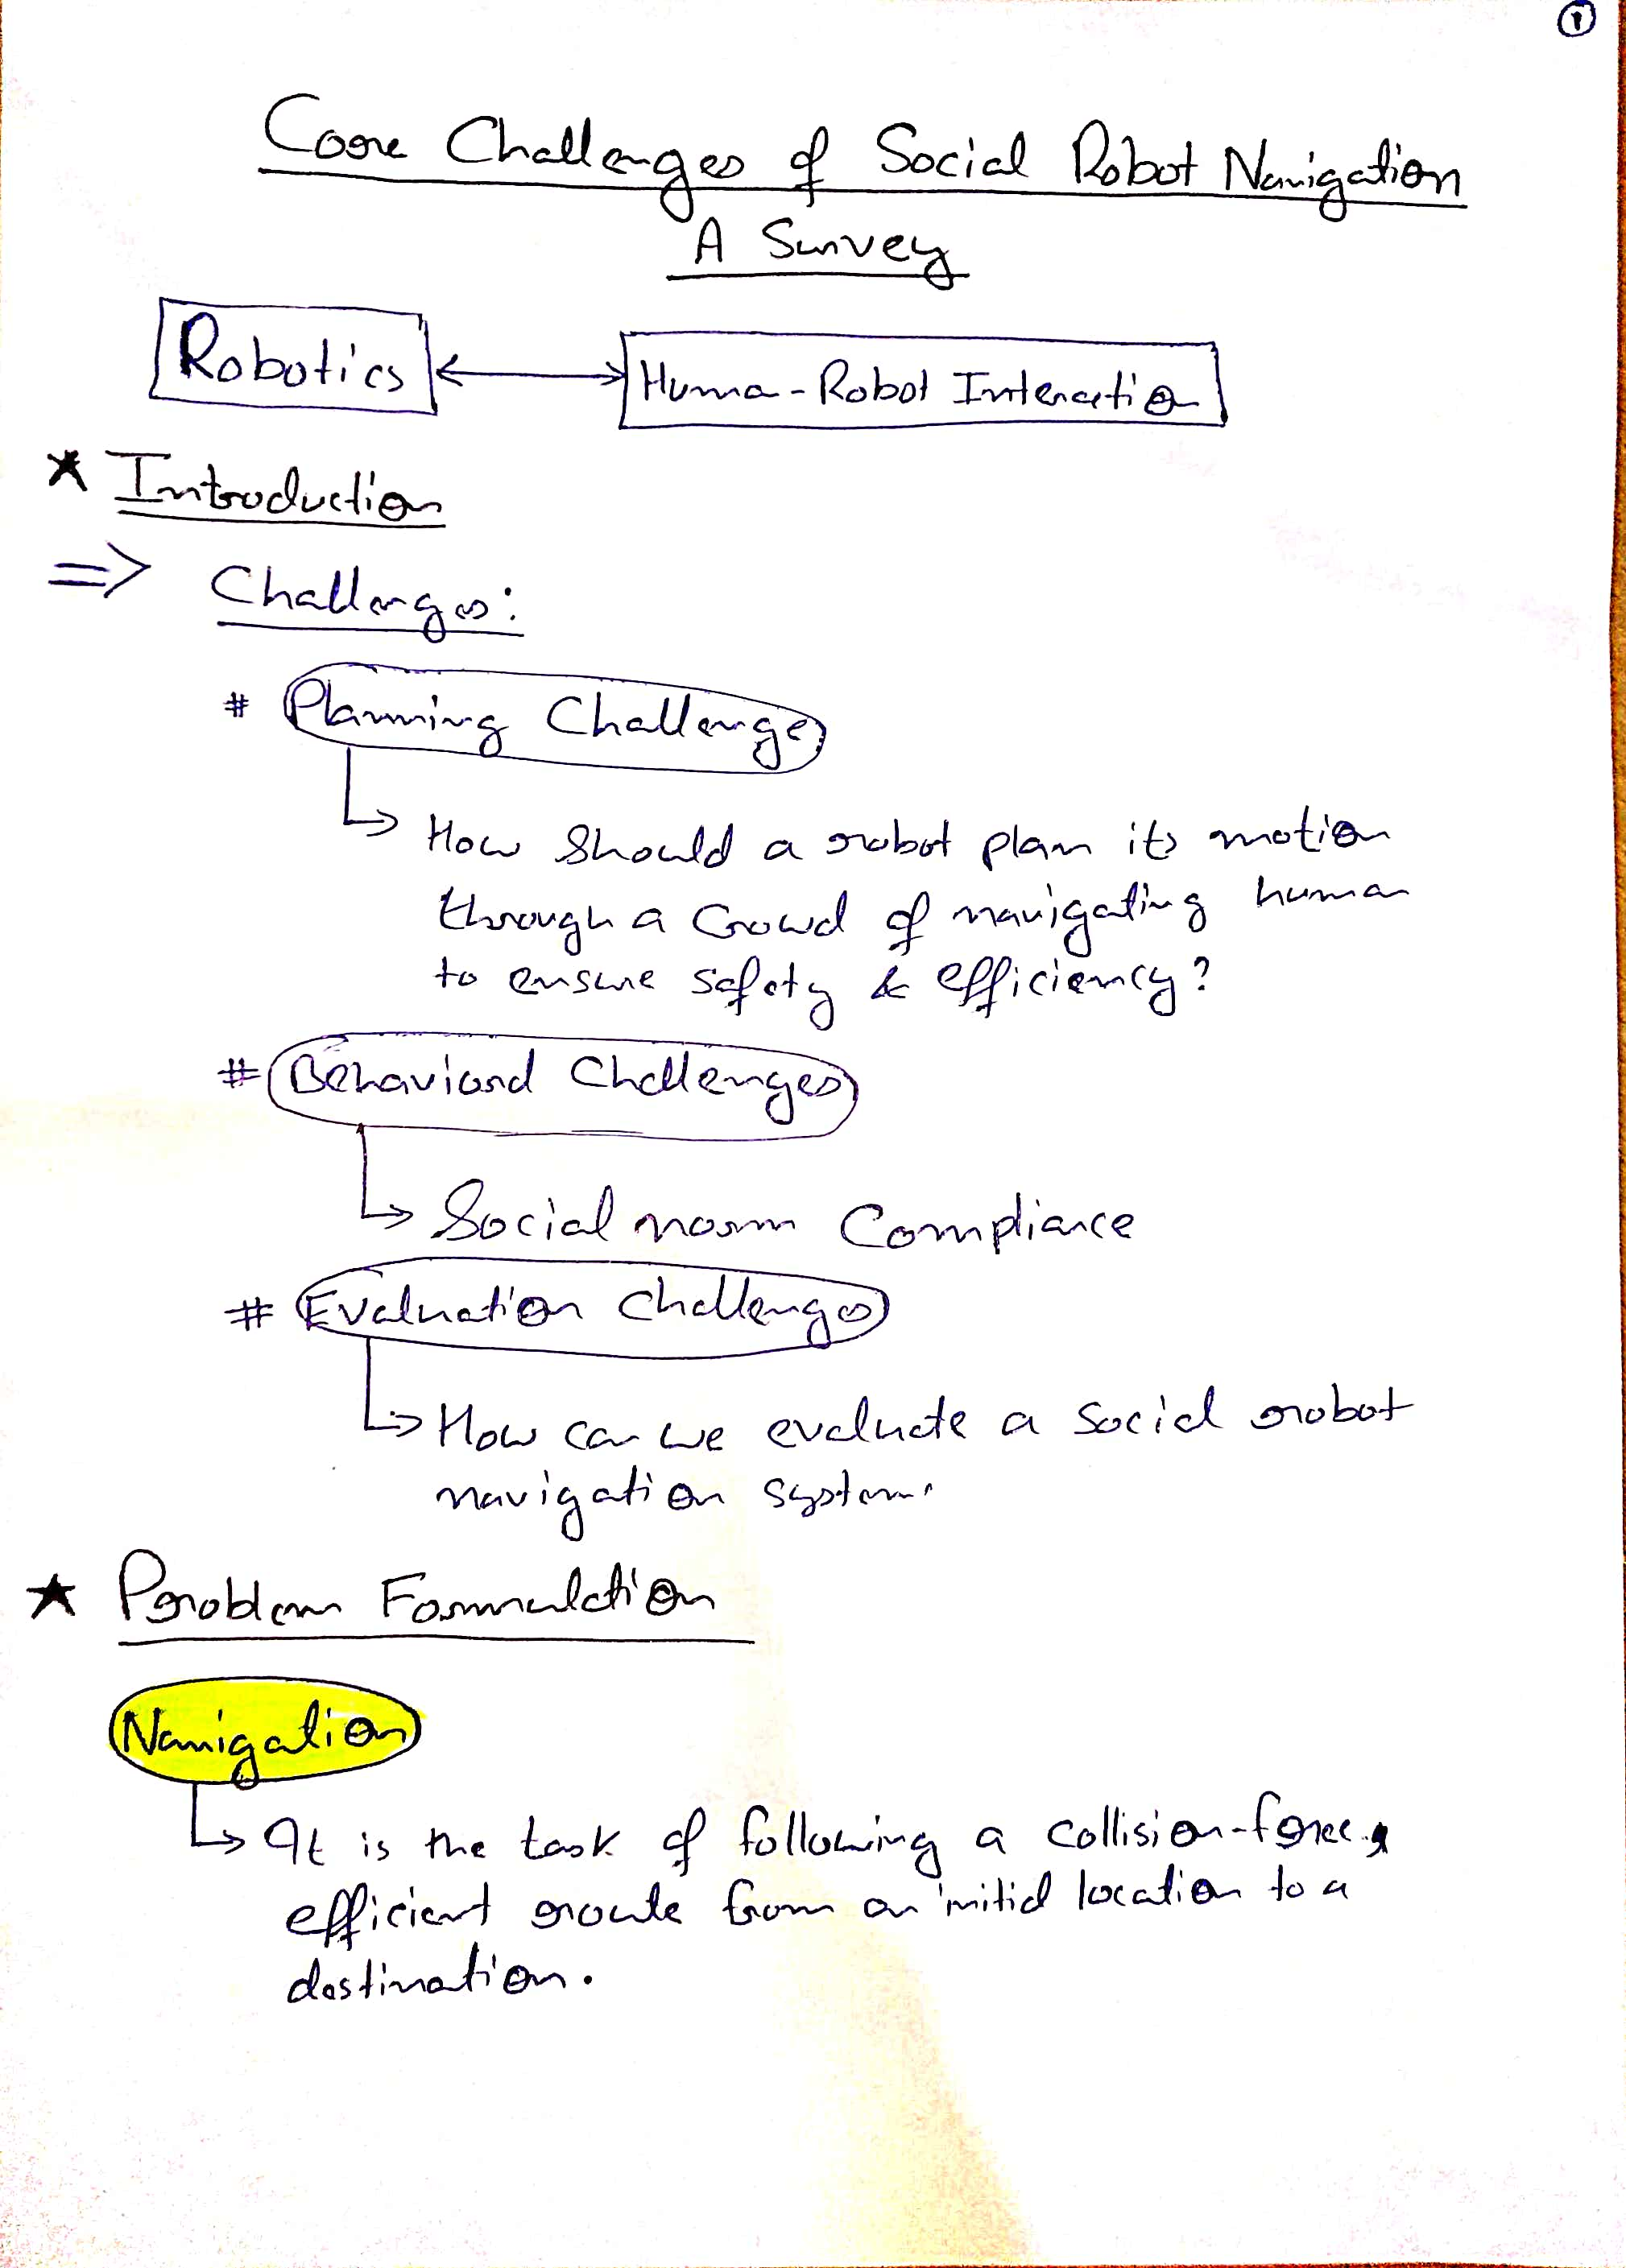 1
Core Challenges of Social Robot Navigation
A Survey
Robotics
Human-Robot Interaction
* Introduction
=> Challenges:
# Planning Challenges
How should a robot plan its motion
through a crowd of navigating human
to ensure safety & efficiency?
# Behavioral Challenges
Social norm Compliance
# Evaluation Challenges
How can we evaluate a social robot
navigation system.
★ Problem Formulation
Navigation
It is the task of following a collision-free,
efficient route from an initial location to a
destination.